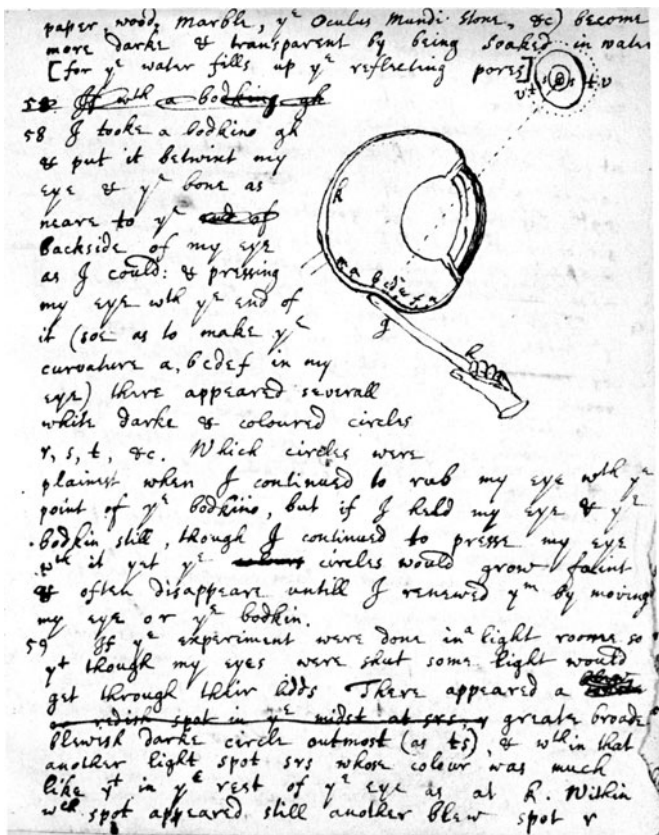 paper, wood, marble, yᵉ Oculus Mundi stone, &c) become
more darke & transparent by being soaked in water
[for yᵉ water fills up yᵉ reflecting pores]
58 If wᵗʰ a bodking gh
58 I tooke a bodkine gh
& put it betwixt my
eye & yᵉ bone as
neare to yᵉ end of
backside of my eye
as I could: & pressing
my eye wᵗʰ yᵉ end of
it (soe as to make yᵉ
curvature a, bcdef in my
eye) there appeared severall
white darke & coloured circles
r, s, t, &c. Which circles were
plainest when I continued to rub my eye wᵗʰ yᵉ
point of yᵉ bodkine, but if I held my eye & yᵉ
bodkin still, though I continued to presse my eye
wᵗʰ it yet yᵉ circles would grow faint
& often disappeare untill I renewed yᵐ by moving
my eye or yᵉ bodkin.
59 If yᵉ experiment were done in a light roome so
yᵗ though my eyes were shut some light would
get through their lidds There appeared a
redish spot in yᵉ midst at srs, greate broade
blewish darke circle outmost (as ts), & wᵗʰin that
another light spot srs whose colour was much
like yᵗ in yᵉ rest of yᵉ eye as at k. Within
wᶜʰ spot appeared still another blew spot r
k
g
h